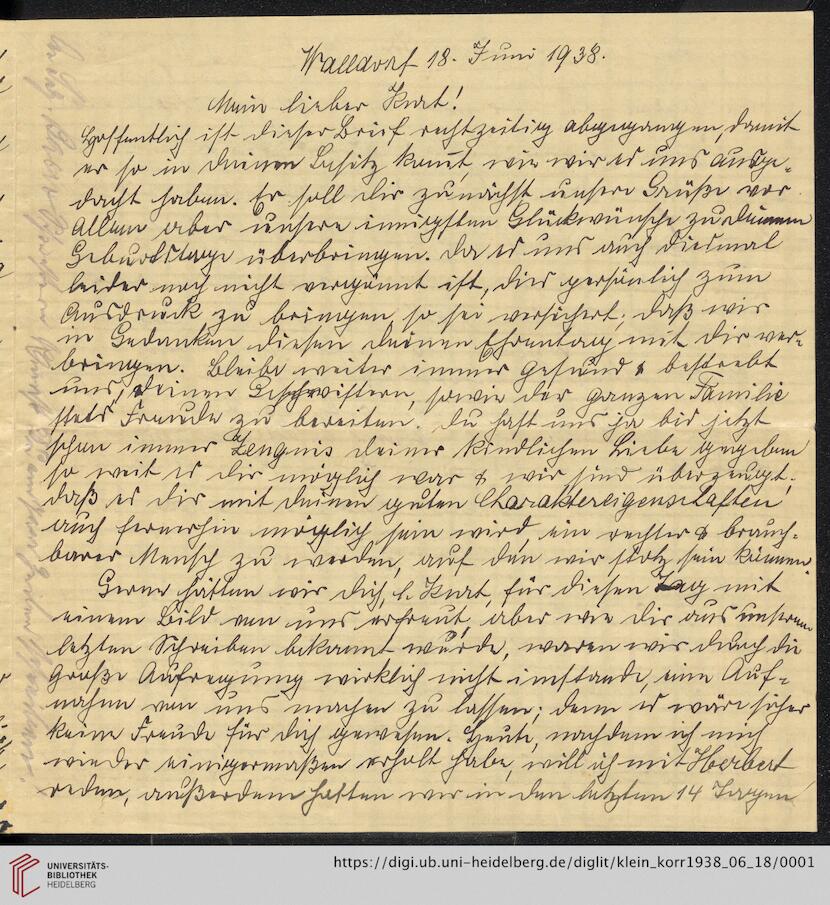 Walldorf 18. Juni 1938.
Mein lieber Kurt!
Hoffentlich ist dieser Brief rechtzeitig abgegangen, damit
er so in deinen Besitz komt, wie wir es uns ausge-
dacht haben. Er soll dir zunächst unsere Grüße vor
Allem aber unsere innigsten Glückwünsche zu deinem
Geburtstage überbringen. Da es uns auch diesmal
leider noch nicht vergönnt ist, dies persönlich zum
Ausdruck zu bringen, so sei versichert, daß wir
in Gedanken diesen deinen Ehrentag mit dir ver-
bringen. Bleibe weiter immer gesund & bestrebt
uns, deinen Geschwistern, sowie der ganzen Familie
stets Freude zu bereiten. Du hast uns ja bis jetzt
schon immer Zeugnis deiner kindlichen Liebe gegeben
so weit es dir möglich war & wir sind überzeugt,
daß es dir mit deinen guten Charaktereigenschaften
auch fernerhin möglich sein wird, ein rechter & brauch-
barer Mensch zu werden, auf den wir stolz sein können.
Gerne hätten wir dich, l. Kurt, für diesen Tag mit
einem Bild von uns erfreut, aber wie dir aus unserem
letzten Schreiben bekannt wurde, waren wir durch die
Große Aufregung wirklich nicht imstande, eine Auf-
nahme von uns machen zu lassen; denn es wäre sicher
keine Freude für dich gewesen. Heute, nachdem ich mich
wieder einigermaßen erholt habe, will ich mit Herbert
reden, außerdem hatten wir in den letzten 14 Tagen
UNIVERSITÄTS-
BIBLIOTHEK
HEIDELBERG
https://digi.ub.uni-heidelberg.de/diglit/klein_korr1938_06_18/0001